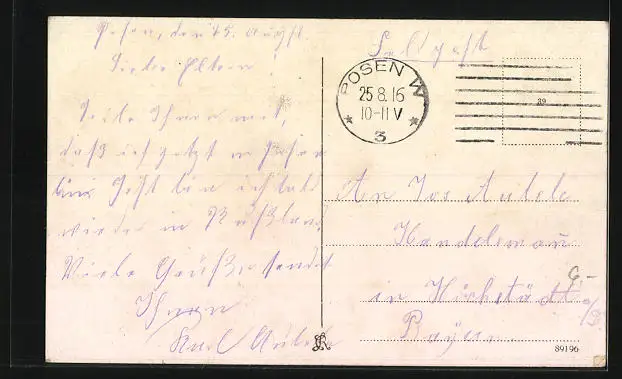 Posen, den 25. Augst.
Liebe Eltern!
Teile Ihnen mit,
daß ich jetzt in Posen
bin
wieder in Rußland
Viele Grüße sendet
Ihnen
Karl Aubele
Feldpost
POSEN W
25 8. 16
10-11 V
* 3 *
39
An Jos Aubele
Handelsmann
in Höchstädt a/D
Bayern
89196